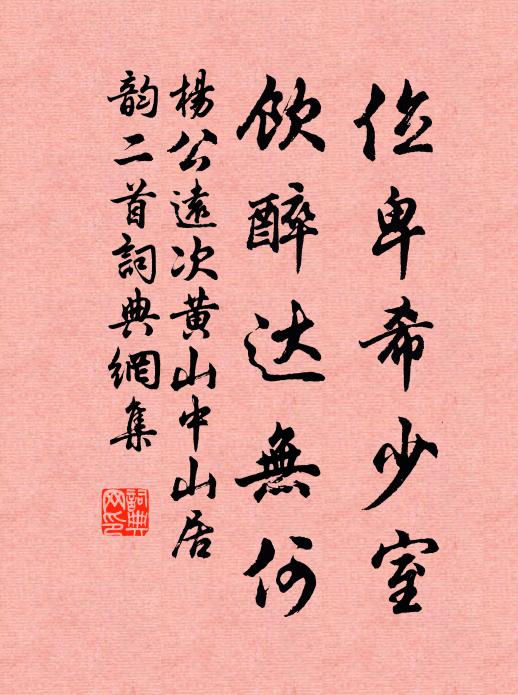 俭卑希少室
饮醉达無何
楊公遠次黄山中山居
韵二首詞典網集
詞典網印